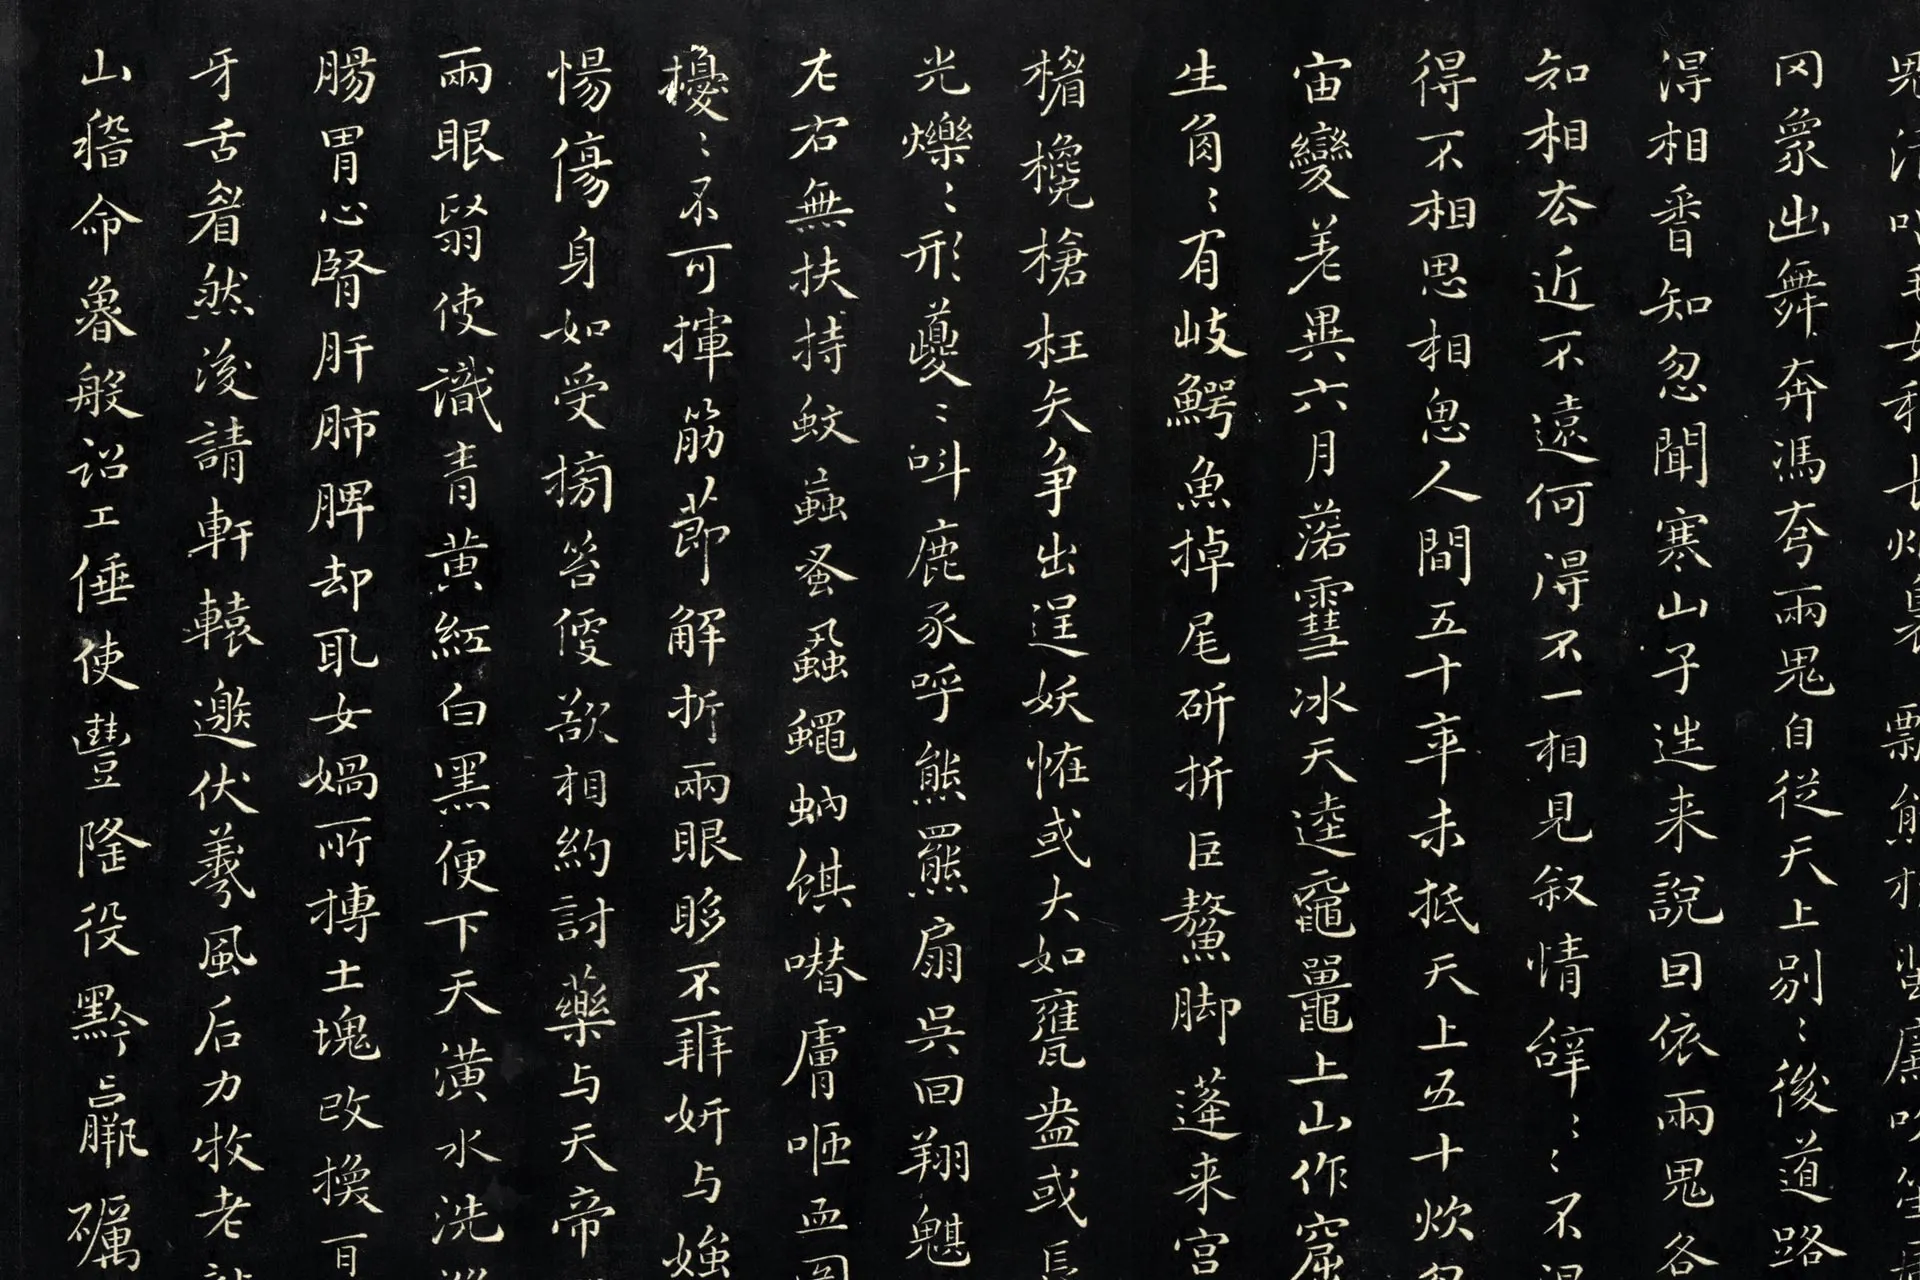 冈象出舞奔馮夸兩鬼自從天上別〻後道路
淂相知忽聞寒山子迬来說囙依兩鬼各
知相去近不遠何淂不一相見叙情辝〻〻不淂
得不相思相思人間五十年未抵天上五十炊忽
宙變差異六月落雪冰天逵黿鼉上山作窟
生角〻有岐鰐魚掉尾斫折巨鰲脚蓬来宫
楣欃槍枉矢争出逞妖恠或大如甕盎或長
光爍〻形躨〻叫鹿豕呼熊羆扇吳回翔魃
左右無扶持蚊䖟蚤蝨蠅蚋蜞噆膚咂血圖
擾〻不可揮筋節解折兩眼眵不辨妍与媸
惕傷身如受搒笞便欲相約討藥与天帝
兩眼翳使識青黄紅白黑便下天潢水洗
腸胃心腎肝肺脾却取女媧所搏土塊改換百
牙舌眉然後請軒轅邀伏羲風后力牧老龍
山稽命魯般詔工倕使豐隆役黔嬴礪